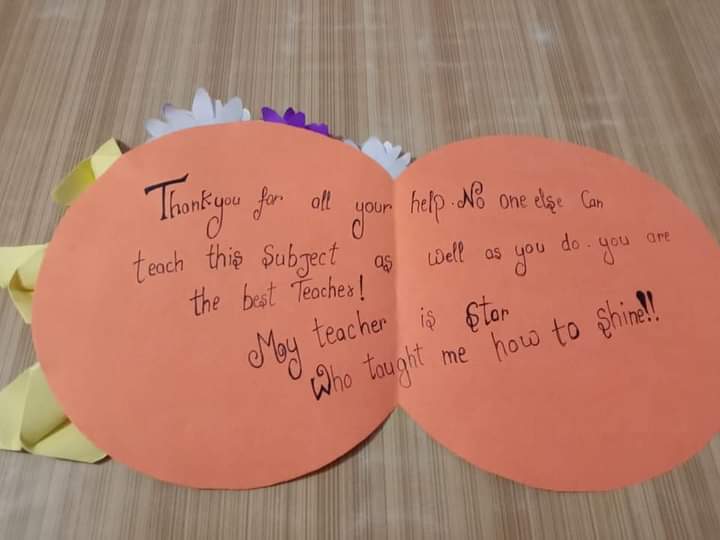 Thankyou for all your help. No one else Can
teach this Subject as well as you do. you are
the best Teacher!
My teacher is Star
Who taught me how to Shine!!